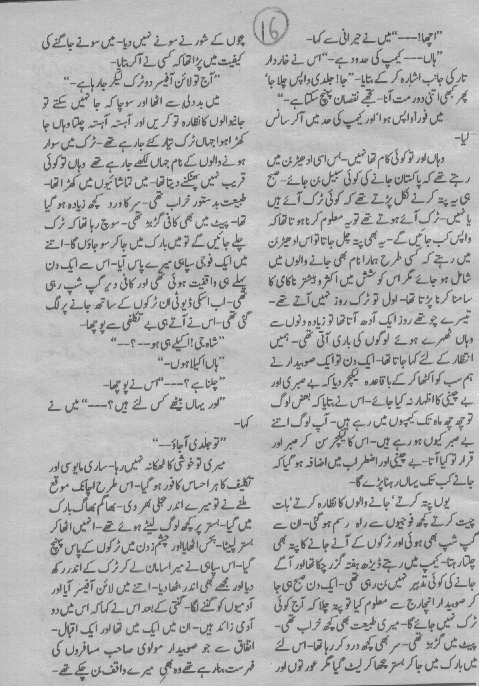 16
"اچھا!---" میں نے حیرانی سے کہا-
"ہاں--- کیمپ کی حدود ہے-" اس نے خاردار
تار کی جانب اشارہ کر کے بتایا- "جا! جلدی واپس چلا جا'
پھر کبھی اتنی دور مت آنا- تجھے نقصان پہنچ سکتا ہے-"
میں فوراً واپس ہوا' اور کیمپ کی حد میں آ کر سانس
لیا-
وہاں اور تو کوئی کام تھا نہیں- بس اسی ادھیڑ بن میں
رہتے تھے کہ پاکستان جانے کی کوئی سبیل بن جائے- صبح
ہی یہ پتہ کرنے نکل پڑتے تھے کہ کوئی ٹرک آئے ہیں
یا نہیں- ٹرک آئے ہوتے تھے تو یہ معلوم کرنا ہوتا تھا کہ
واپس کب جائیں گے- یہ بھی پتہ چل جاتا تو اس ادھیڑ بن
میں رہتے کہ کسی طرح ہمارا نام بھی جانے والوں میں
شامل ہو جائے مگر اس کوشش میں اکثر و بیشتر ناکامی کا
سامنا کرنا پڑتا تھا- اول تو ٹرک روز نہیں آتے تھے-
تیسرے چوتھے روز ایک آدھ آتا تھا تو زیادہ دنوں سے
وہاں ٹھہرے ہوئے لوگوں کی باری آتی تھی- ہمیں
انتظار کے لئے کہا جاتا تھا- ایک دن تو ایک صوبیدار نے
ہم سب کو اکٹھا کر کے باقاعدہ لیکچر دیا کہ بے صبری اور
بے چینی کا اظہار نہ کیا جائے- اس نے بتایا کہ بعض لوگ
تو چھ چھ ماہ تک کیمپوں میں رہے ہیں- آپ لوگ اتنے
بے صبر کیوں ہو رہے ہیں- اس کا لیکچر سن کر صبر اور
قرار تو کیا آتا- بے چینی اور اضطراب میں اضافہ ہو گیا کہ
جانے کب تک یہاں رہنا پڑے گا-
یوں پتہ کرتے' جانے والوں کا نظارہ کرتے' بات
چیت کرتے کچھ فوجیوں سے راہ و رسم ہو گئی- ان سے
گپ شپ بھی ہوتی اور ٹرکوں کے آنے جانے کا پتہ بھی
چلتا رہتا- کیمپ میں رہتے ڈیڑھ ہفتہ گزر چکا تھا اور آگے
جانے کی کوئی تدبیر نہیں بن رہی تھی- ایک دن صبح ہی جا
کر صوبیدار انچارج سے معلوم کیا تو پتہ چلا کہ آج کوئی
ٹرک نہیں جائے گا- میری طبیعت بھی کچھ خراب تھی-
پیٹ میں گڑبڑ تھی- سر بھی کچھ درد کر رہا تھا- اس لئے
میں بارک میں جا کر بستر بچھا کر لیٹ گیا مگر عورتوں اور
بچوں کے شور نے سونے نہیں دیا- میں سونے جاگنے کی
کیفیت میں پڑا تھا کہ کسی نے آ کر بتایا-
"آج تو لائن آفیسر دو ٹرک لیکر جا رہا ہے-"
میں بددلی سے اٹھا اور سوچا کہ جا نہیں سکتے تو
جانیوالوں کا نظارہ تو کریں اور آہستہ آہستہ چلتا وہاں جا
کھڑا ہوا جہاں ٹرک تیار کئے جا رہے تھے- ٹرک میں سوار
ہونے والوں کے نام جہاں لکھے جا رہے تھے وہاں تو کوئی
قریب نہیں پھٹکنے دیتا تھا- میں تماشائیوں میں کھڑا تھا-
طبیعت بدستور خراب تھی- سر کا درد کچھ زیادہ ہو گیا
تھا- پیٹ میں بھی کافی گڑبڑ تھی- سوچ رہا تھا کہ ٹرک
چلے جائیں گے تو میں بارک میں جا کر سو جاؤں گا- اتنے
میں ایک فوجی سپاہی میرے پاس آیا- اس سے ایک دن
پہلے ہی واقفیت ہوئی تھی اور کافی دیر گپ شپ رہی
تھی- اب اسکی ڈیوٹی ان ٹرکوں کے ساتھ جانے پر لگ
گئی تھی- اس نے آتے ہی بے تکلفی سے پوچھا-
"شاہ جی! اکیلے ہی ہو--؟--"
"ہاں اکیلا ہوں-"
"چلنا ہے؟---" اس نے پوچھا-
"اور یہاں بیٹھے کس لئے ہیں؟---" میں نے
کہا-
"تو جلدی آ جاؤ--"
میری تو خوشی کا ٹھکانہ نہیں رہا- ساری مایوسی اور
تکلیف کا ہر احساس کافور ہو گیا- اس طرح اچانک موقع
ملنے نے تو میرے اندر بجلی بھر دی- بھاگم بھاگ بارک
میں گیا- بستر پر کچھ لوگ لیٹے ہوئے تھے- انہیں اٹھا کر
بستر لپیٹا- بکس اٹھایا اور چشم زدن میں ٹرکوں کے پاس پہنچ
گیا- اس سپاہی نے میرا سامان لے کر ٹرک کے اندر رکھ
دیا اور مجھے بھی اندر بٹھا دیا- اتنے میں لائن آفیسر آیا اور
آدمیوں کو گننے لگا- گنتی کے بعد اس نے کہا کہ اس میں دو
آدمی زائد ہیں- ان میں ایک میں تھا اور ایک اقبال-
اتفاق سے جو صوبیدار مولوی صاحب مسافروں کی
فہرست بنا رہے تھے وہ بھی میرے واقف بن چکے تھے-